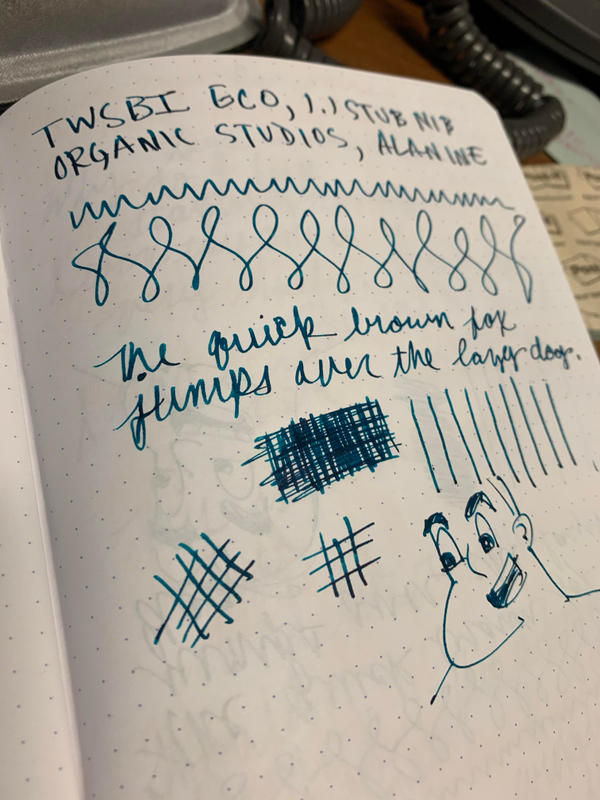 TWSBI ECO, 1.1 STUB NIB
ORGANIC STUDIOS, ALANINE
The quick brown fox
jumps over the lazy dog.